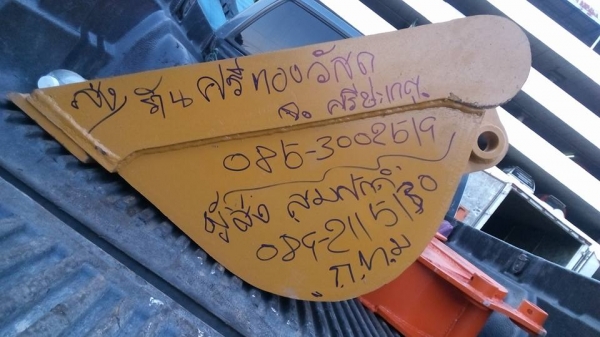 ส่ง ร้าน ศรีทองวัสดุ
จ. ศรีสะเกษ
085-3002519
ผู้ส่ง สมศักดิ์
084-2115130
ก.ท.ม